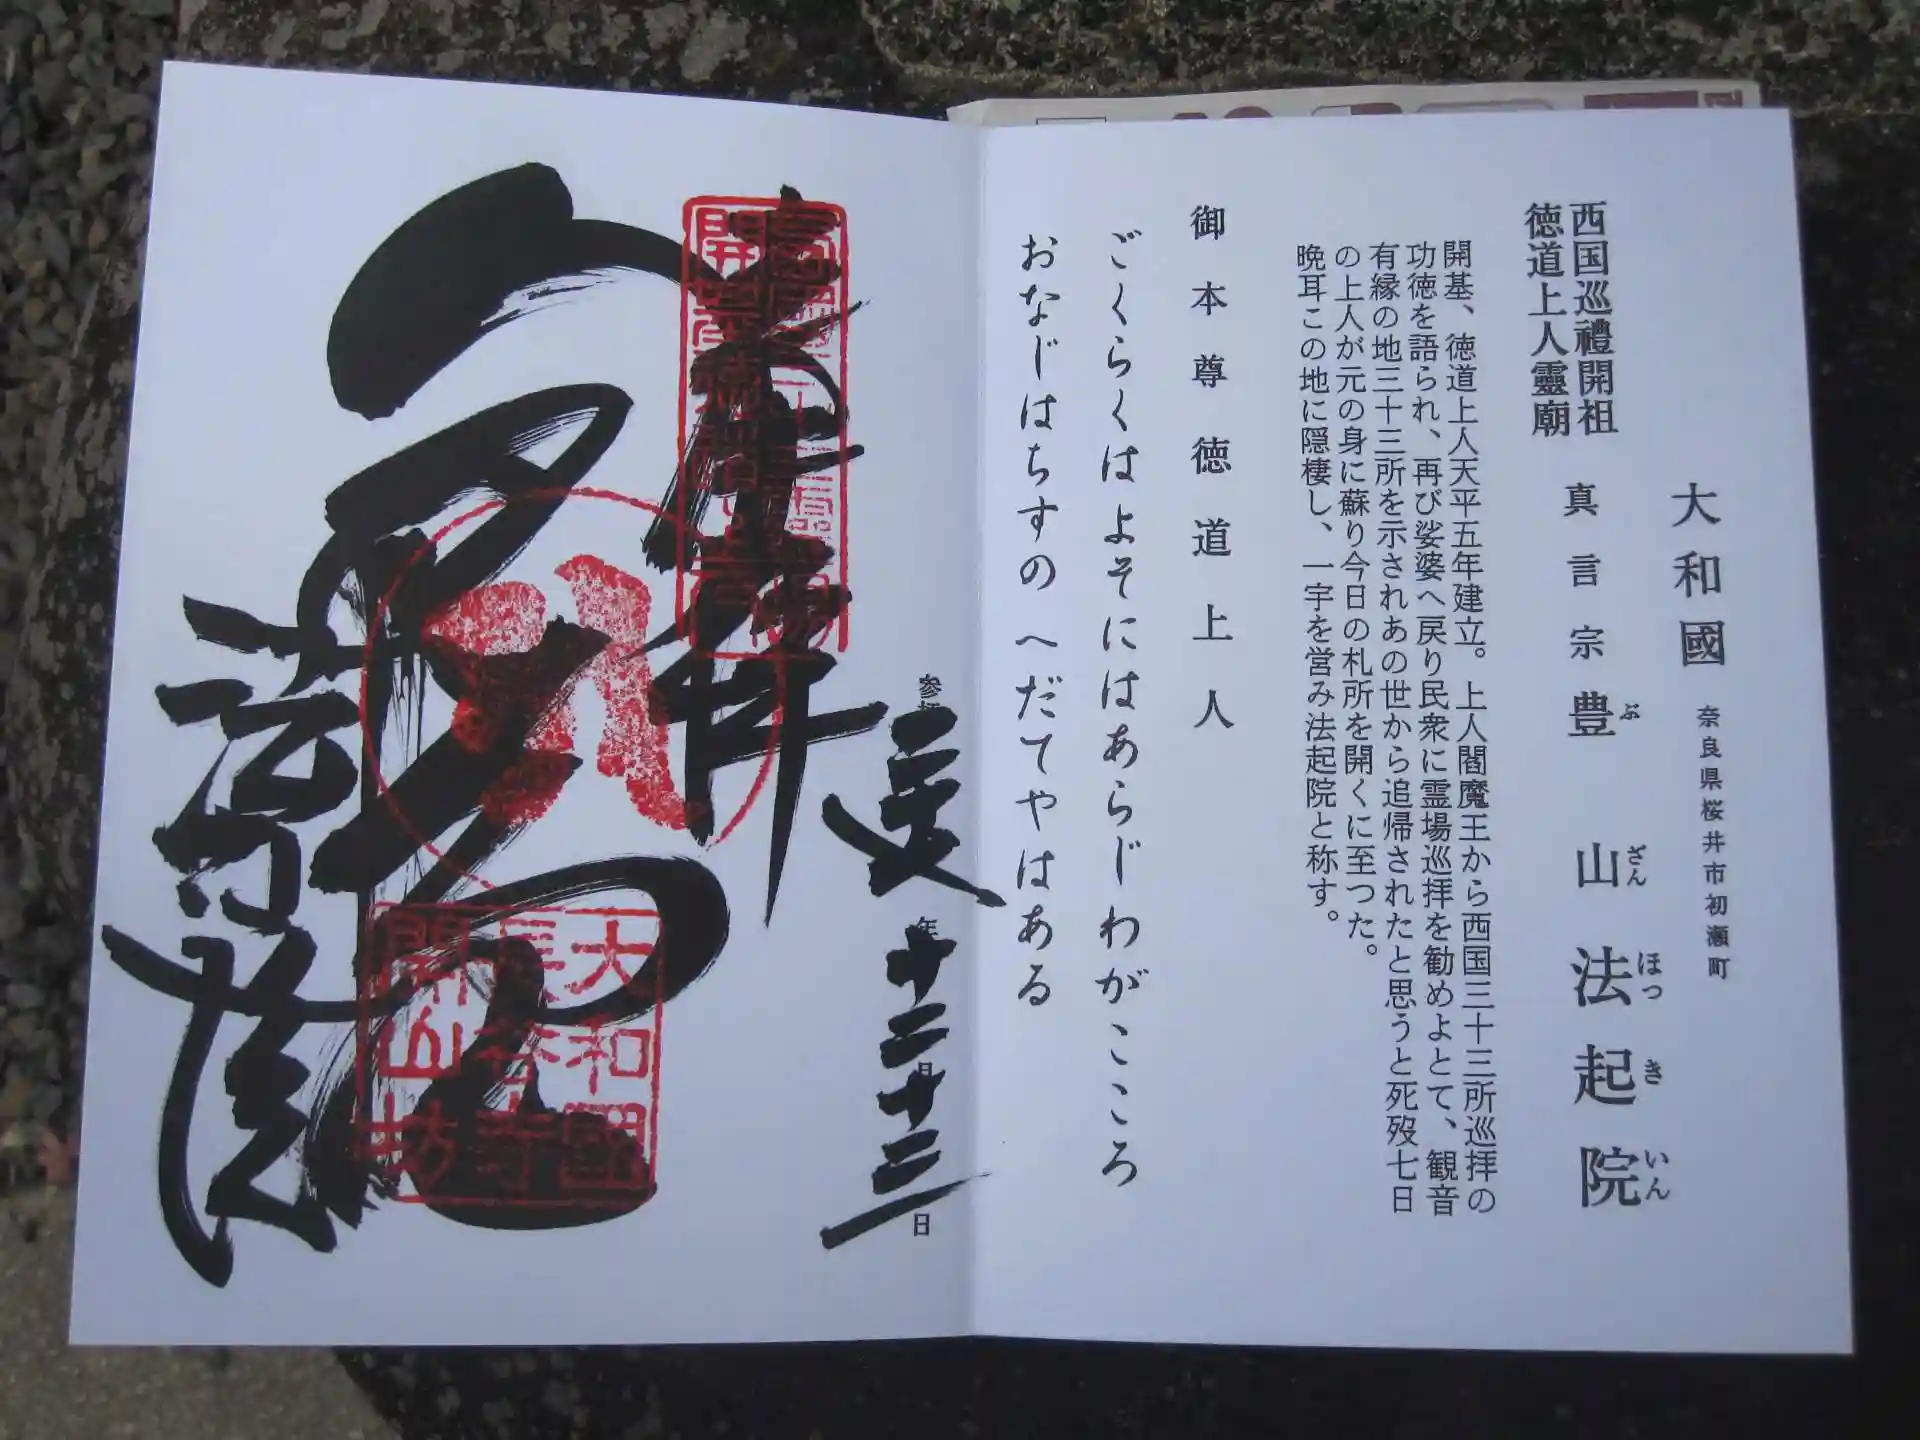 大和國 奈良県桜井市初瀬町
西国巡禮開祖
徳道上人靈廟
真言宗 豊山 法起院
ぶ ざん ほつ き いん
開基、徳道上人天平五年建立。上人閻魔王から西国三十三所巡拝の
功徳を語られ、再び娑婆へ戻り民衆に霊場巡拝を勧めよとて、観音
有縁の地三十三所を示されあの世から追帰されたと思うと死歿七日
の上人が元の身に蘇り今日の札所を開くに至つた。
晩耳この地に隠棲し、一宇を営み法起院と称す。
御本尊 徳道上人
ごくらくはよそにはあらじわがこころ
おなじはちすの へだてやはある
奉拝
年 十二月 十三日
法起院
大和國
長谷寺
開山坊